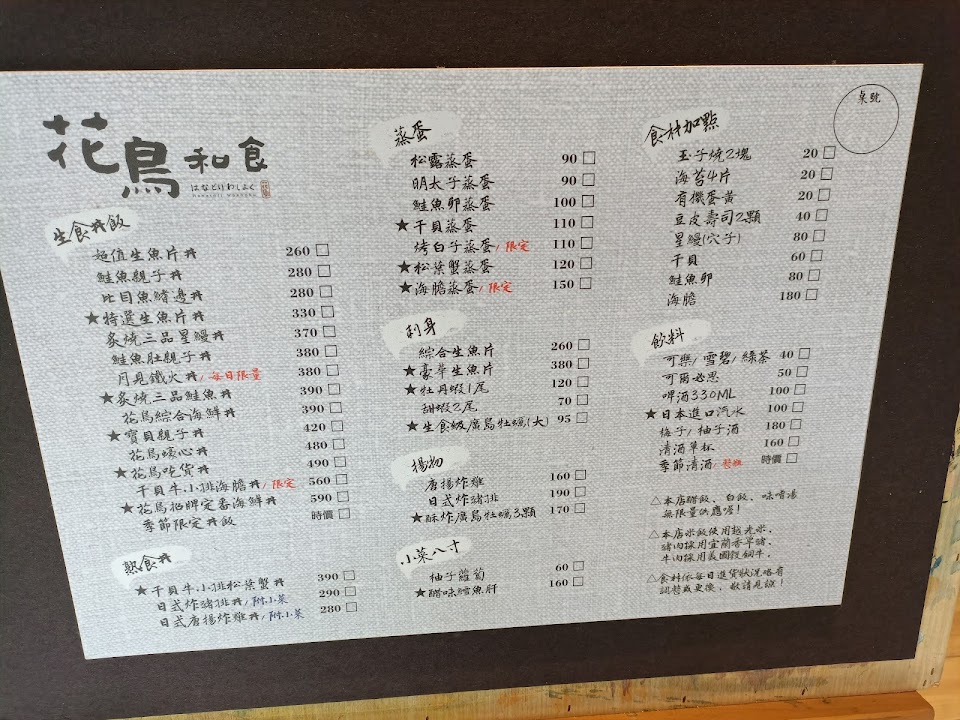 花鳥和食
はなどりわしょく
桌號
生食丼飯
超值生魚片丼 260
鮭魚親子丼 280
比目魚鰭邊丼 280
★特選生魚片丼 330
炙燒三品星鰻丼 370
鮭魚肚親子丼 380
月見鐵火丼/每日限量 380
★炙燒三品鮭魚丼 390
花鳥綜合海鮮丼 390
★寶貝親子丼 420
花鳥螓心丼 480
★花鳥吃貨丼 490
干貝牛小排海膽丼/限定 560
★花鳥招牌定番海鮮丼 590
季節限定丼飯 時價
熟食丼
★干貝牛小排松葉蟹丼 390
日式炸豬排丼/附小菜 290
日式唐揚炸雞丼/附小菜 280
蒸蛋
松露蒸蛋 90
明太子蒸蛋 90
鮭魚卵蒸蛋 100
★干貝蒸蛋 110
烤白子蒸蛋/限定 110
★松葉蟹蒸蛋 120
★海膽蒸蛋/限定 150
刺身
綜合生魚片 260
★豪華生魚片 380
★牡丹蝦1尾 120
甜蝦2尾 70
★生食級廣島牡蠣(大) 95
揚物
唐揚炸雞 160
日式炸豬排 190
★酥炸廣島牡蠣3顆 170
小菜八寸
柚子蘿蔔 60
★醋味鱈魚肝 160
食材加點
玉子燒2塊 20
海苔4片 20
有機蛋黃 20
豆皮壽司2顆 40
星鰻(穴子) 80
干貝 60
鮭魚卵 80
海膽 180
飲料
可樂/雪碧/綠茶 40
可爾必思 50
啤酒330ML 100
★日本進口汽水 100
梅子/柚子酒 180
清酒單杯 160
季節清酒/整瓶 時價
△本店醋飯、白飯、味噌湯
無限量供應喔!
△本店米飯使用越光米,
豬肉採用宜蘭香草豬,
牛肉採用美國穀飼牛。
△食材依每日進貨狀況略有
調整或更換,敬請見諒!